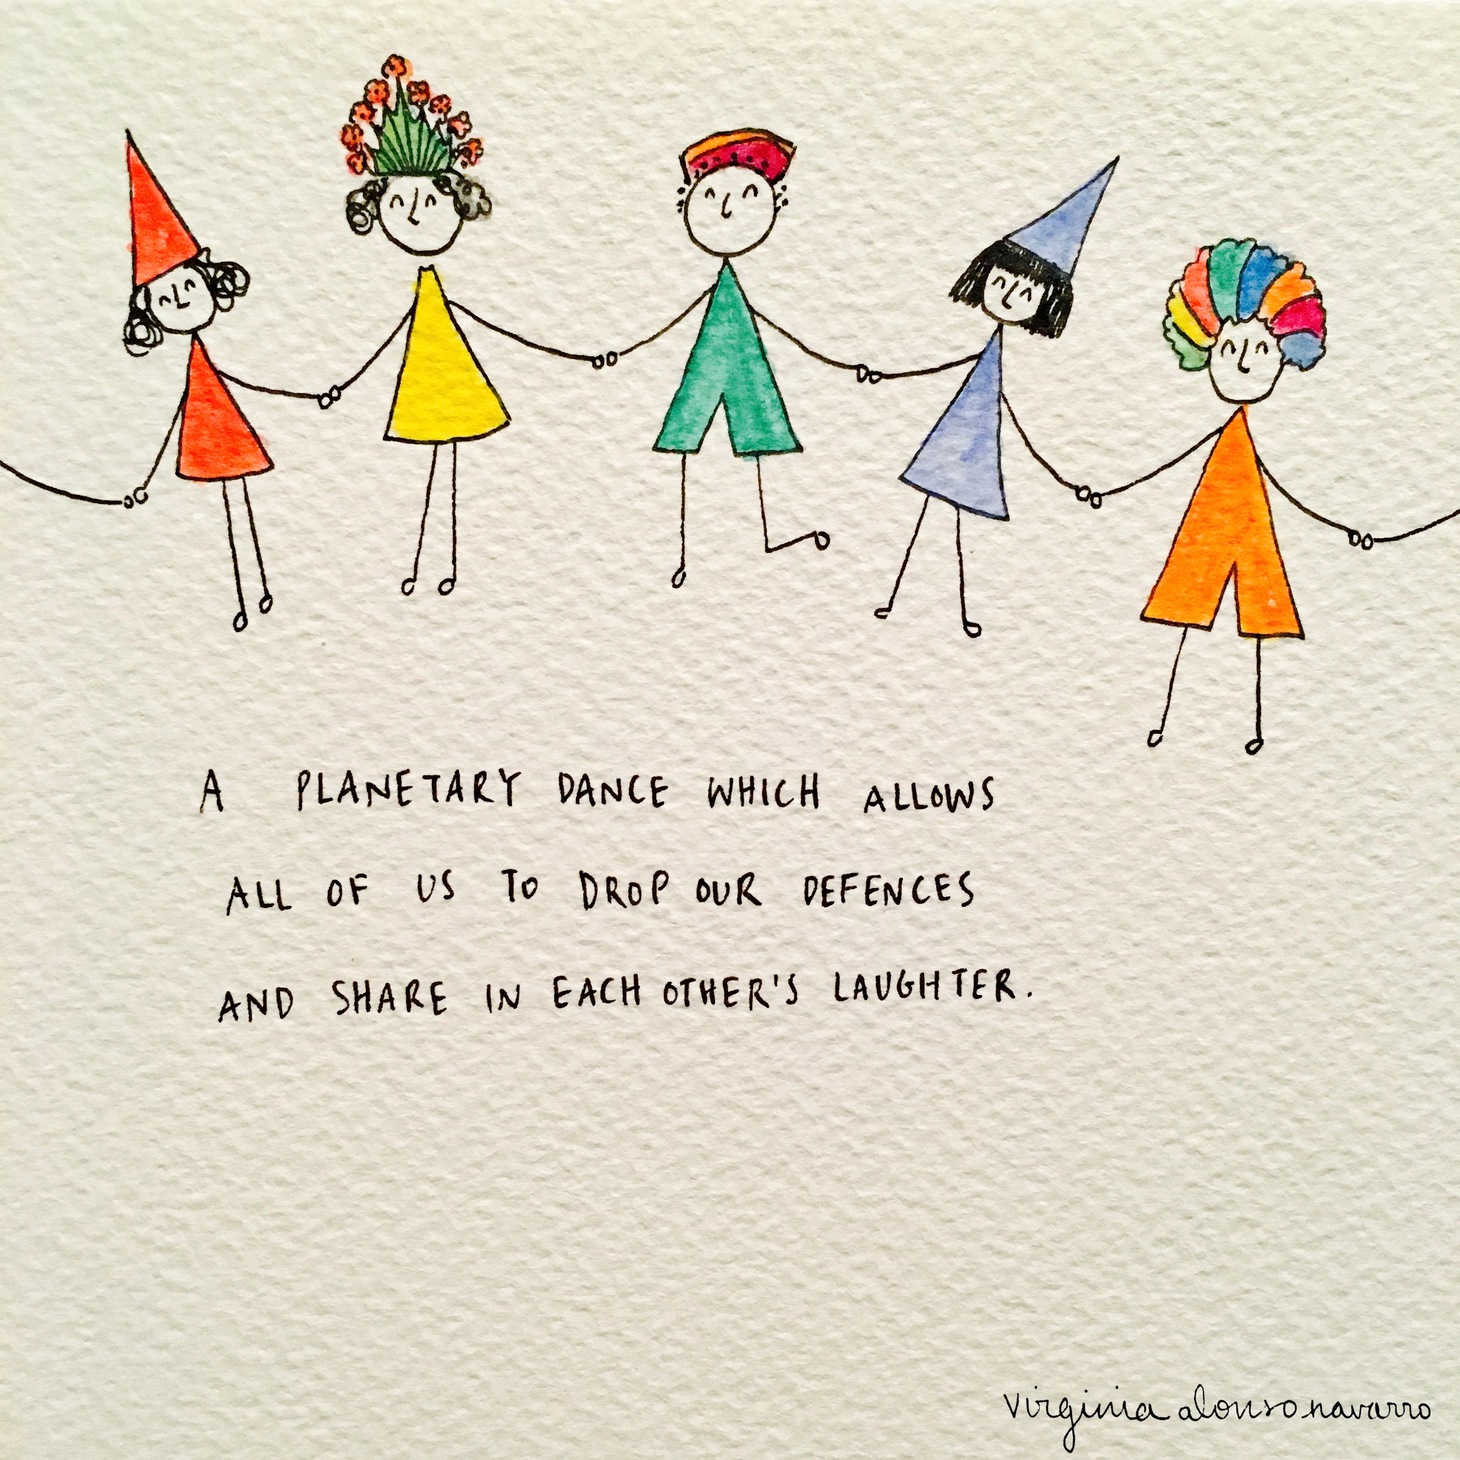 A PLANETARY DANCE WHICH ALLOWS
ALL OF US TO DROP OUR DEFENCES
AND SHARE IN EACH OTHER'S LAUGHTER.
virginia alonso navarro